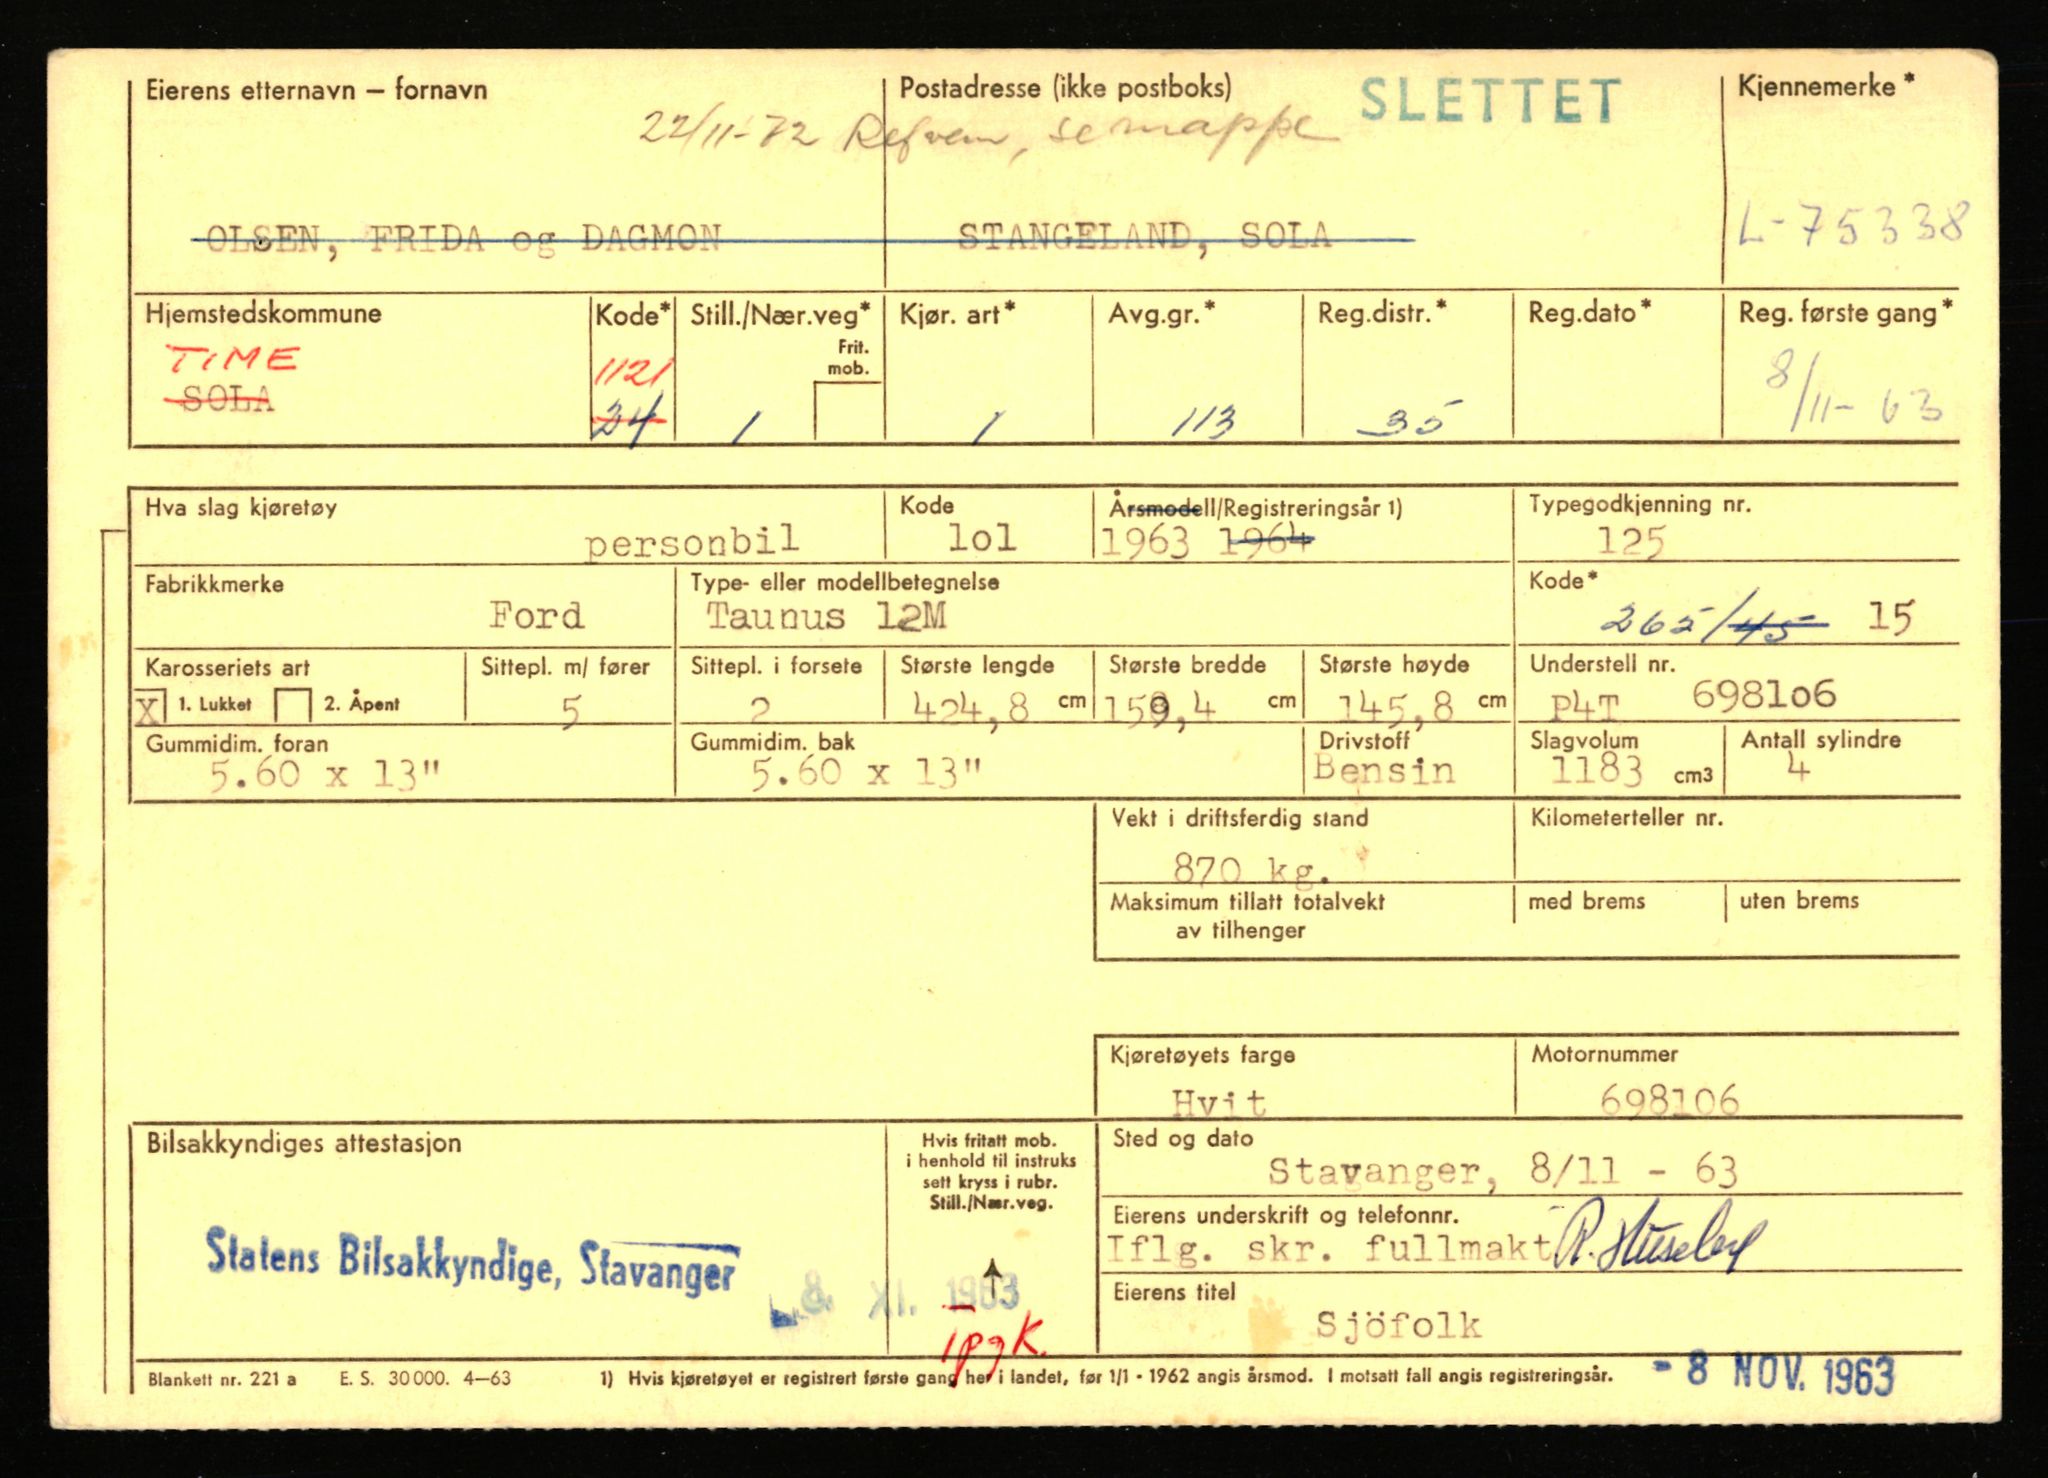 Eierens etternavn – fornavn
Postadresse (ikke postboks)
SLETTET
Kjennemerke*
22/11-72 Refvem, se mappe
OLSEN, FRIDA og DAGMON
STANGELAND, SOLA
L-75338
Hjemstedskommune
Kode*
Still./Nær.veg*
Kjør. art*
Avg.gr.*
Reg.distr.*
Reg.dato*
Reg. første gang*
Frit.
mob.
TIME
1121
SOLA
24
1
1
113
35
8/11-63
Hva slag kjøretøy
Kode
Årsmodell/Registreringsår 1)
Typegodkjenning nr.
personbil
lol
1963 1964
125
Fabrikkmerke
Type- eller modellbetegnelse
Kode*
Ford
Taunus 12M
265/45 15
Karosseriets art
Sittepl. m/ fører
Sittepl. i forsete
Største lengde
Største bredde
Største høyde
Understell nr.
X 1. Lukket
2. Åpent
5
2
424,8 cm
159,4 cm
145,8 cm
P4T 698106
Gummidim. foran
Gummidim. bak
Drivstoff
Slagvolum
Antall sylindre
5.60 x 13"
5.60 x 13"
Bensin
1183 cm3
4
Vekt i driftsferdig stand
Kilometerteller nr.
870 kg.
Maksimum tillatt totalvekt
av tilhenger
med brems
uten brems
Kjøretøyets farge
Motornummer
Hvit
698106
Bilsakkyndiges attestasjon
Hvis fritatt mob.
i henhold til instruks
sett kryss i rubr.
Still./Nær.veg.
Sted og dato
Stavanger, 8/11 - 63
Eierens underskrift og telefonnr.
Iflg. skr. fullmakt R. Huseby
Statens Bilsakkyndige, Stavanger
8. XI. 1963
Eierens titel
Sjöfolk
Blankett nr. 221 a
E. S. 30000. 4–63
1) Hvis kjøretøyet er registrert første gang her i landet, før 1/1 - 1962 angis årsmod. I motsatt fall angis registreringsår.
- 8 NOV. 1963